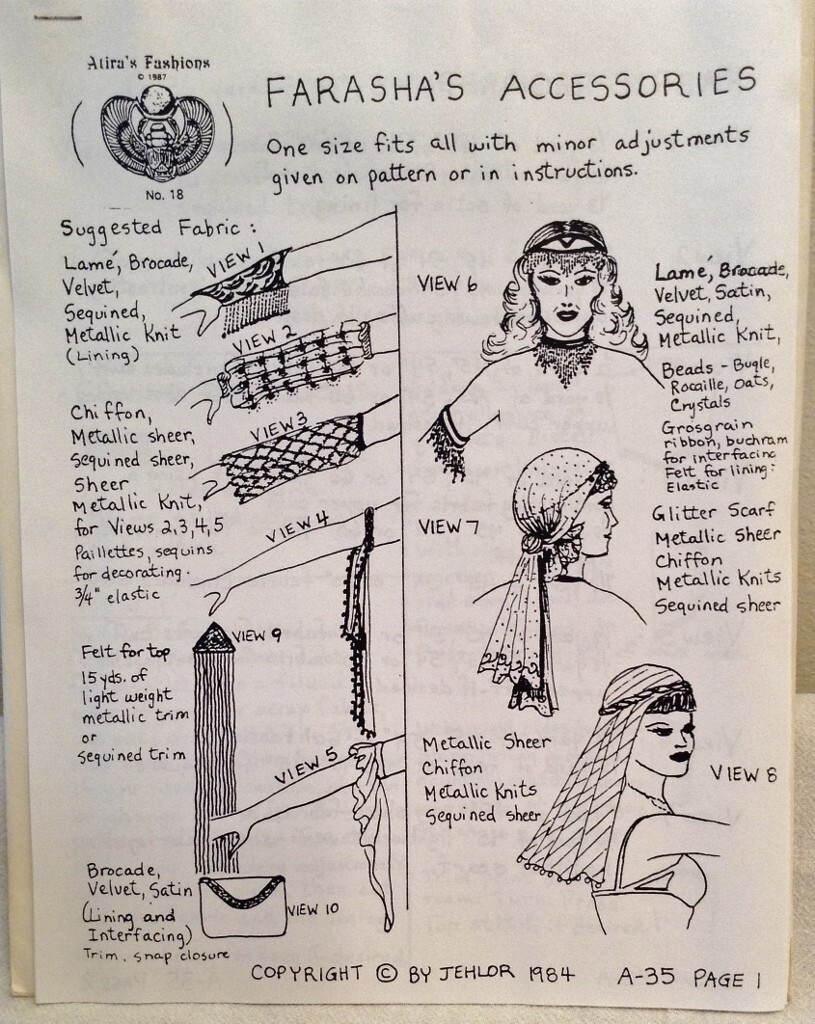 Atira's Fashions
© 1987
No. 18
FARASHA'S ACCESSORIES
One size fits all with minor adjustments
given on pattern or in instructions.
Suggested Fabric :
Lamé, Brocade,
Velvet,
Sequined,
Metallic Knit
(Lining)
VIEW 1
VIEW 2
Chiffon,
Metallic sheer,
Sequined sheer,
Sheer
Metallic Knit,
for Views 2,3,4,5
Paillettes, sequins
for decorating.
3/4" elastic
VIEW 3
VIEW 4
VIEW 9
Felt for top
15 yds. of
light weight
metallic trim
or
sequined trim
VIEW 5
Brocade,
Velvet, Satin
(Lining and
Interfacing)
Trim, snap closure
VIEW 10
VIEW 6
Lamé, Brocade,
Velvet, Satin,
Sequined,
Metallic Knit,
Beads - Bugle,
Rocaille, Oats,
Crystals
Grosgrain
ribbon, buchram
for interfacing
Felt for lining:
Elastic
VIEW 7
Glitter Scarf
Metallic Sheer
Chiffon
Metallic Knits
Sequined sheer
Metallic Sheer
Chiffon
Metallic Knits
Sequined sheer
VIEW 8
COPYRIGHT © BY JEHLOR 1984 A-35 PAGE 1